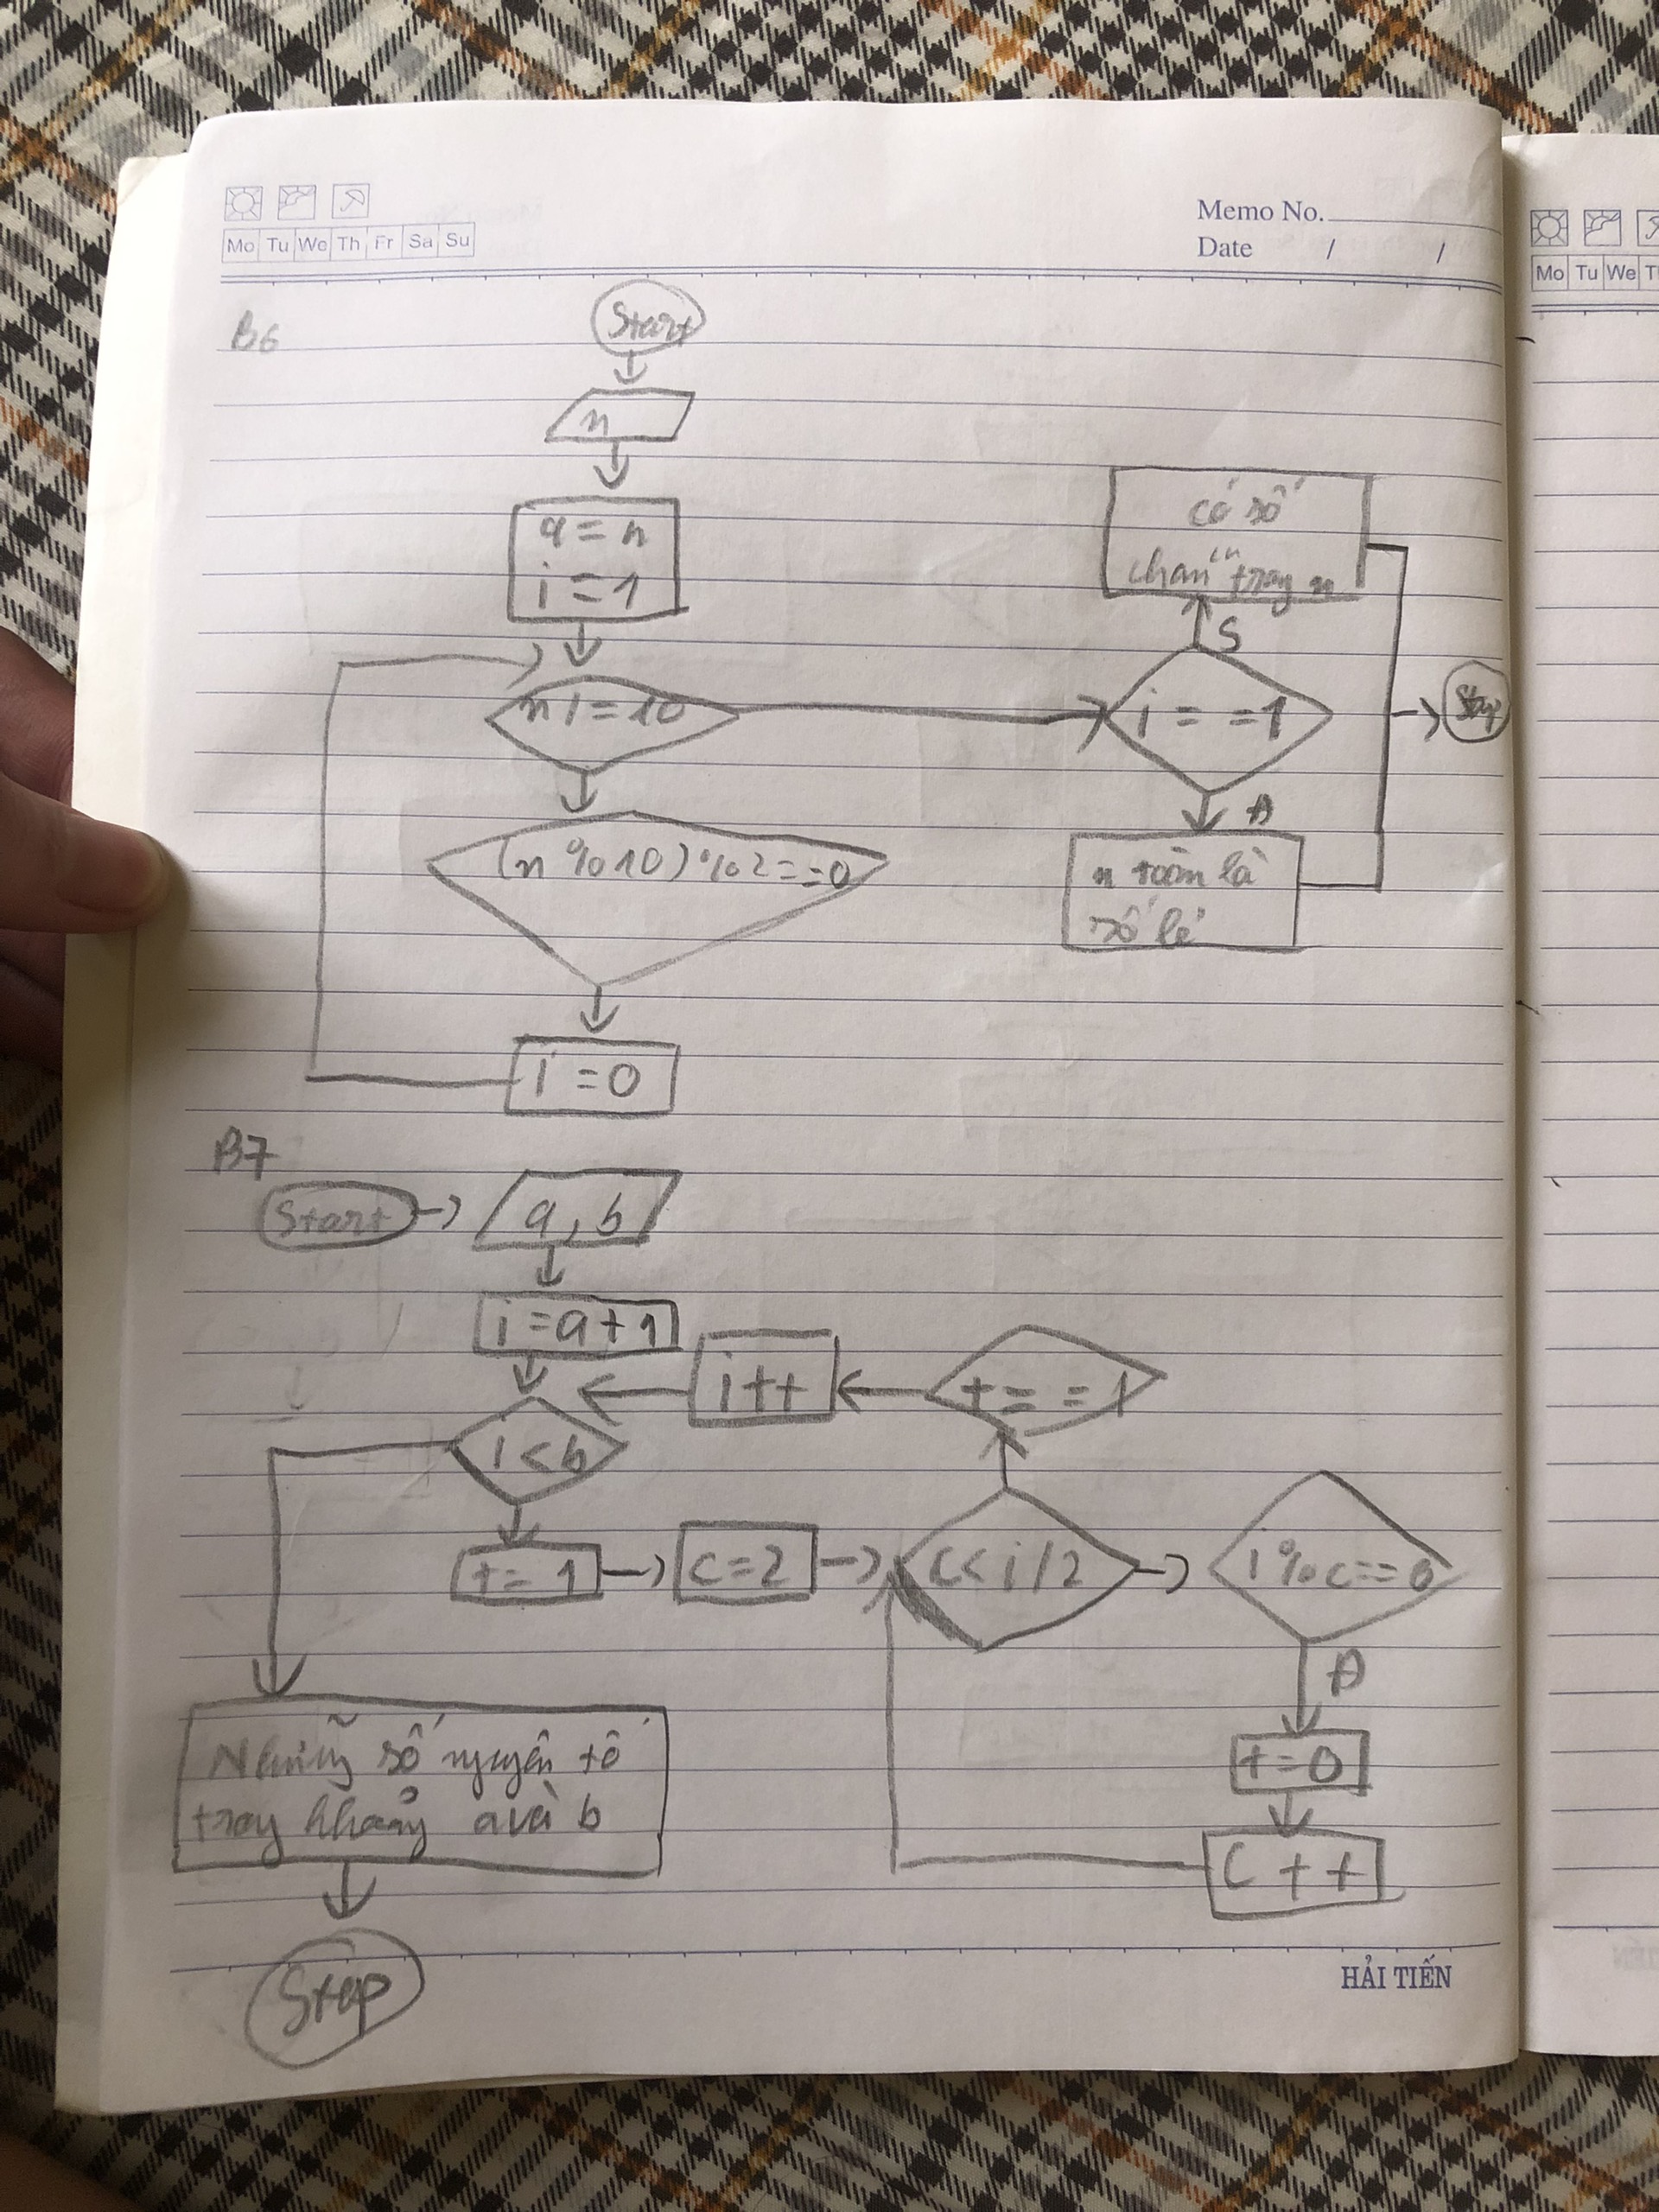 Mo Tu We Th Fr Sa Su
Memo No.
Date / /
Mo Tu We
B6
Start
n
a = n
i = 1
n / = 10
(n % 10) % 2 == 0
i = 0
có số
chẵn trong n
S
i == 1
Đ
n toàn là
số lẻ
Stop
B7
Start
a, b
i = a + 1
i < b
i ++
t == 1
t = 1
c = 2
c < i / 2
i % c == 0
Đ
t = 0
C ++
Những số nguyên tố
trong khoảng a và b
Stop
HẢI TIẾN